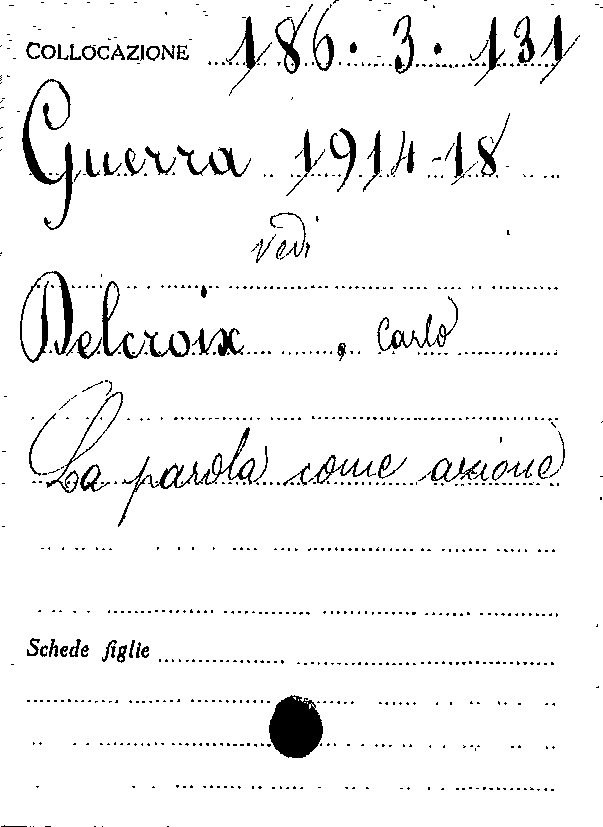 COLLOCAZIONE 186.3.131
Guerra 1914-18
vedi
Delcroix, Carlo
La parola come azione
Schede figlie